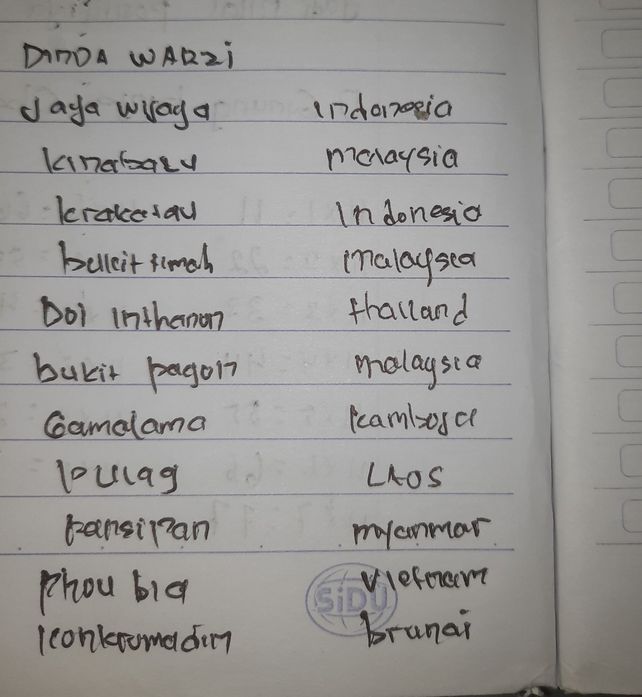 DINDA WARZI
Jaya wijaya Indonesia
kinabalu malaysia
krakatau Indonesia
bukit timah malaysea
Doi inthanon thailand
bukit pagon malaysia
Gamalama kamboja
pulag LAOS
fansipan myanmar
phou bia vietnam
SiDU
brunai